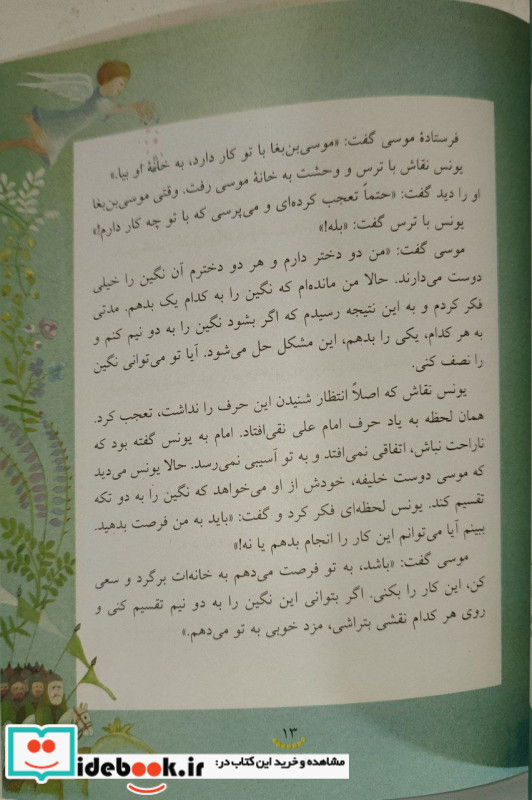 فرستادهٔ موسی گفت: «موسی‌بن‌بغا با تو کار دارد، به خانهٔ او بیا.»
یونس نقاش با ترس و وحشت به خانهٔ موسی رفت. وقتی موسی‌بن‌بغا
او را دید گفت: «حتماً تعجب کرده‌ای و می‌پرسی که با تو چه کار دارم!»
یونس با ترس گفت: «بله!»
موسی گفت: «من دو دختر دارم و هر دو دخترم آن نگین را خیلی
دوست می‌دارند. حالا من مانده‌ام که نگین را به کدام یک بدهم. مدتی
فکر کردم و به این نتیجه رسیدم که اگر بشود نگین را به دو نیم کنم و
به هر کدام، یکی را بدهم، این مشکل حل می‌شود. آیا تو می‌توانی نگین
را نصف کنی.
یونس نقاش که اصلاً انتظار شنیدن این حرف را نداشت، تعجب کرد.
همان لحظه به یاد حرف امام علی نقی‌افتاد. امام به یونس گفته بود که
ناراحت نباش، اتفاقی نمی‌افتد و به تو آسیبی نمی‌رسد. حالا یونس می‌دید
که موسی دوست خلیفه، خودش از او می‌خواهد که نگین را به دو تکه
تقسیم کند. یونس لحظه‌ای فکر کرد و گفت: «باید به من فرصت بدهید.
ببینم آیا می‌توانم این کار را انجام بدهم یا نه!»
موسی گفت: «باشد، به تو فرصت می‌دهم به خانه‌ات برگرد و سعی
کن، این کار را بکنی. اگر بتوانی این نگین را به دو نیم تقسیم کنی و
روی هر کدام نقشی بتراشی، مزد خوبی به تو می‌دهم.»
۱۳
idebook.ir
مشاهده و خرید این کتاب در: